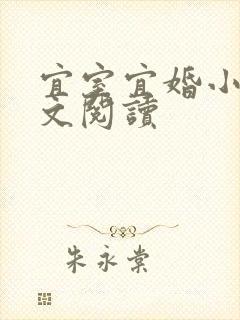 宜室宜婚小
文閱讀
朱永棠